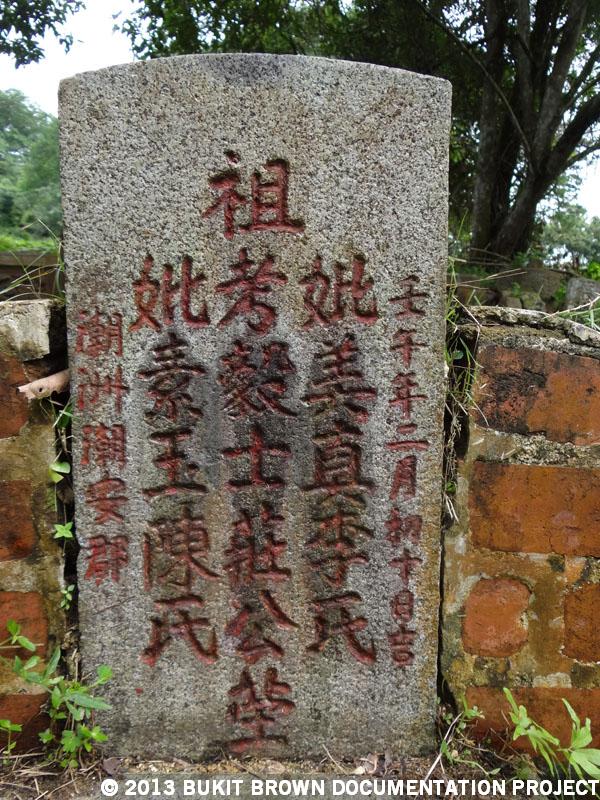 壬午年二月初十日吉
妣美真李氏
祖考毅士莊公塋
妣素玉陳氏
潮洲潮安郡
© 2013 BUKIT BROWN DOCUMENTATION PROJECT